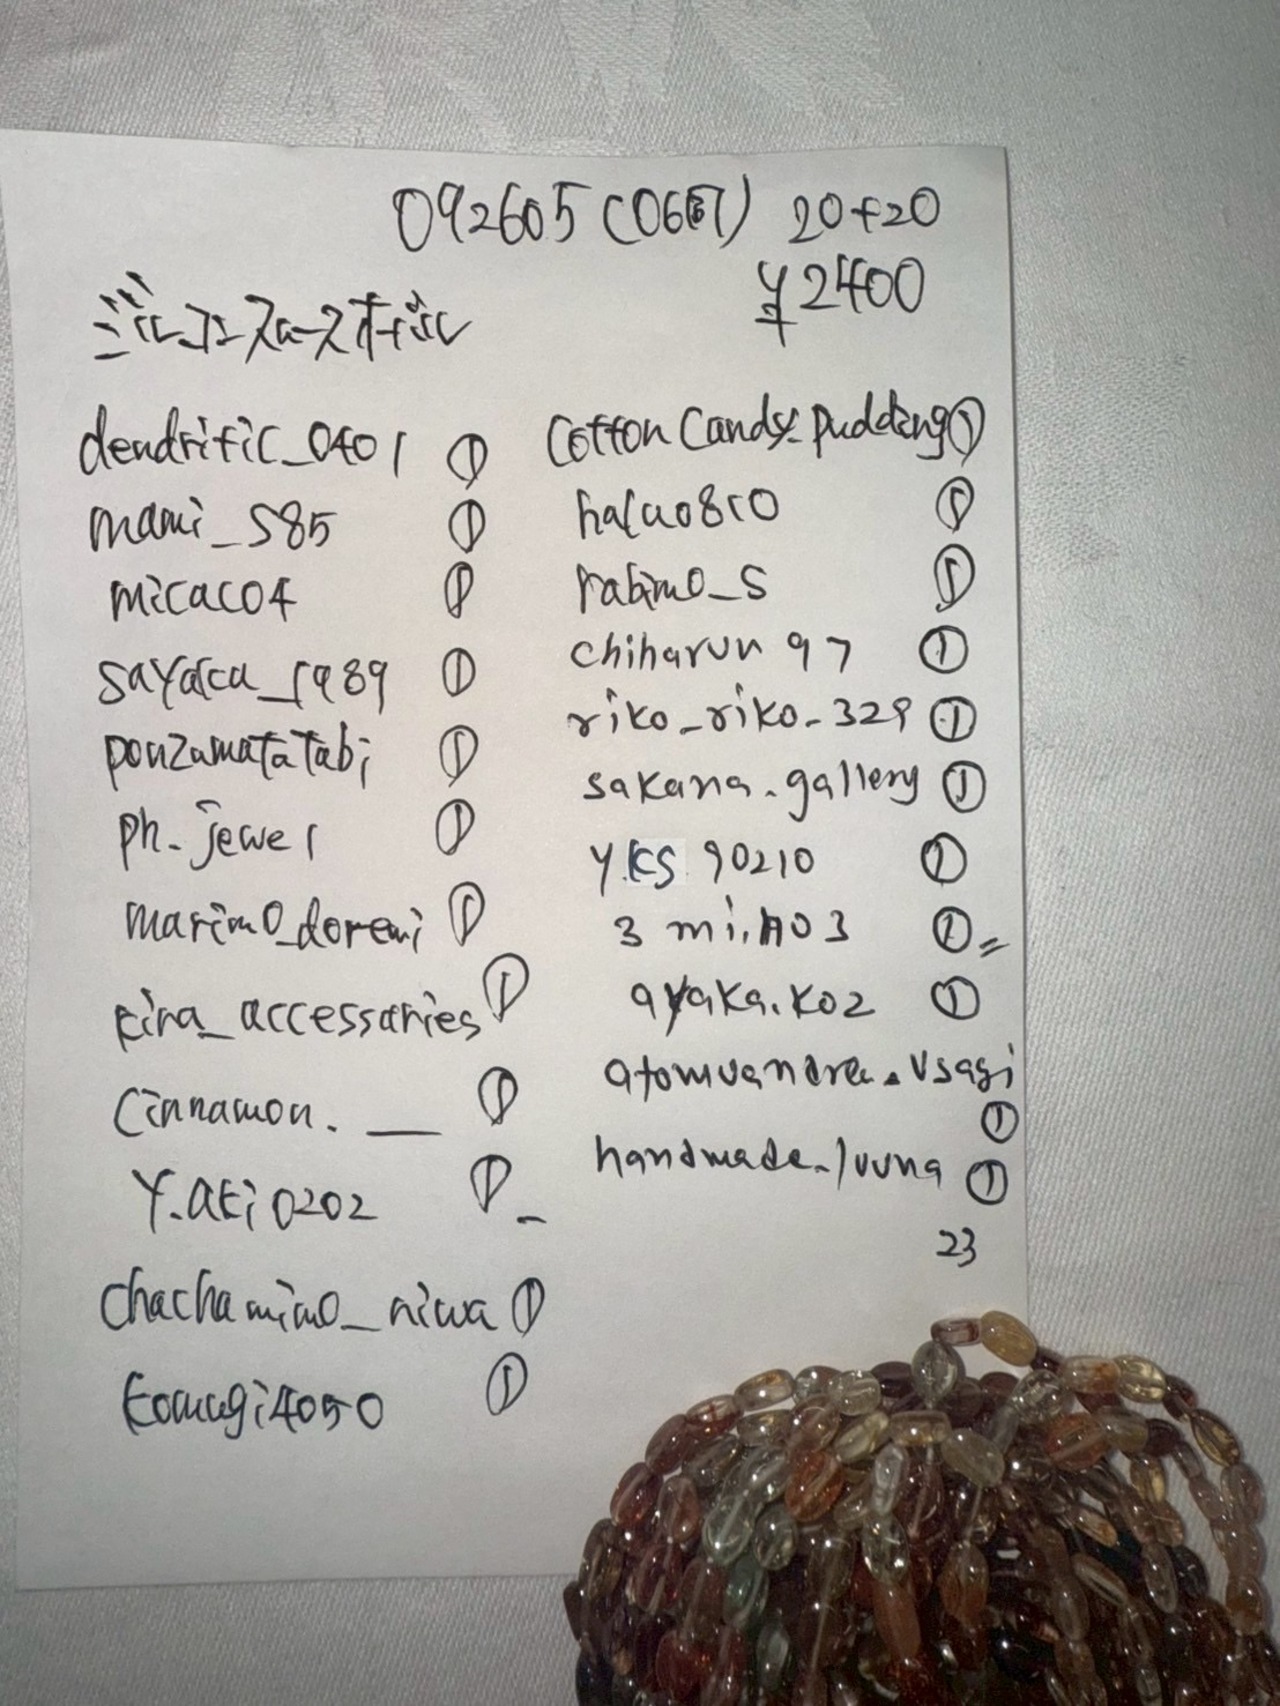 092605 (0667) 20+20
¥2400
dendritic_0401 ①
mami_S85 ①
micaco4 ①
sayaka_1989 ①
ponzamatatabi ①
ph-jewel ①
marimo_doremi ①
kira_accessaries ①
Cinnamon.__ ①
Y.aki0202 ①
chachamimo_niwa ①
komugi4050 ①
CottonCandy_pudding ①
haluo810 ①
rabimo_S ①
chiharun97 ①
riko_riko_329 ①
sakana.gallery ①
YKS90210 ①
3mi.A03 ②
ayaka.ko2 ①
atomuandrea.usagi
①
handmade_luuna ①
23